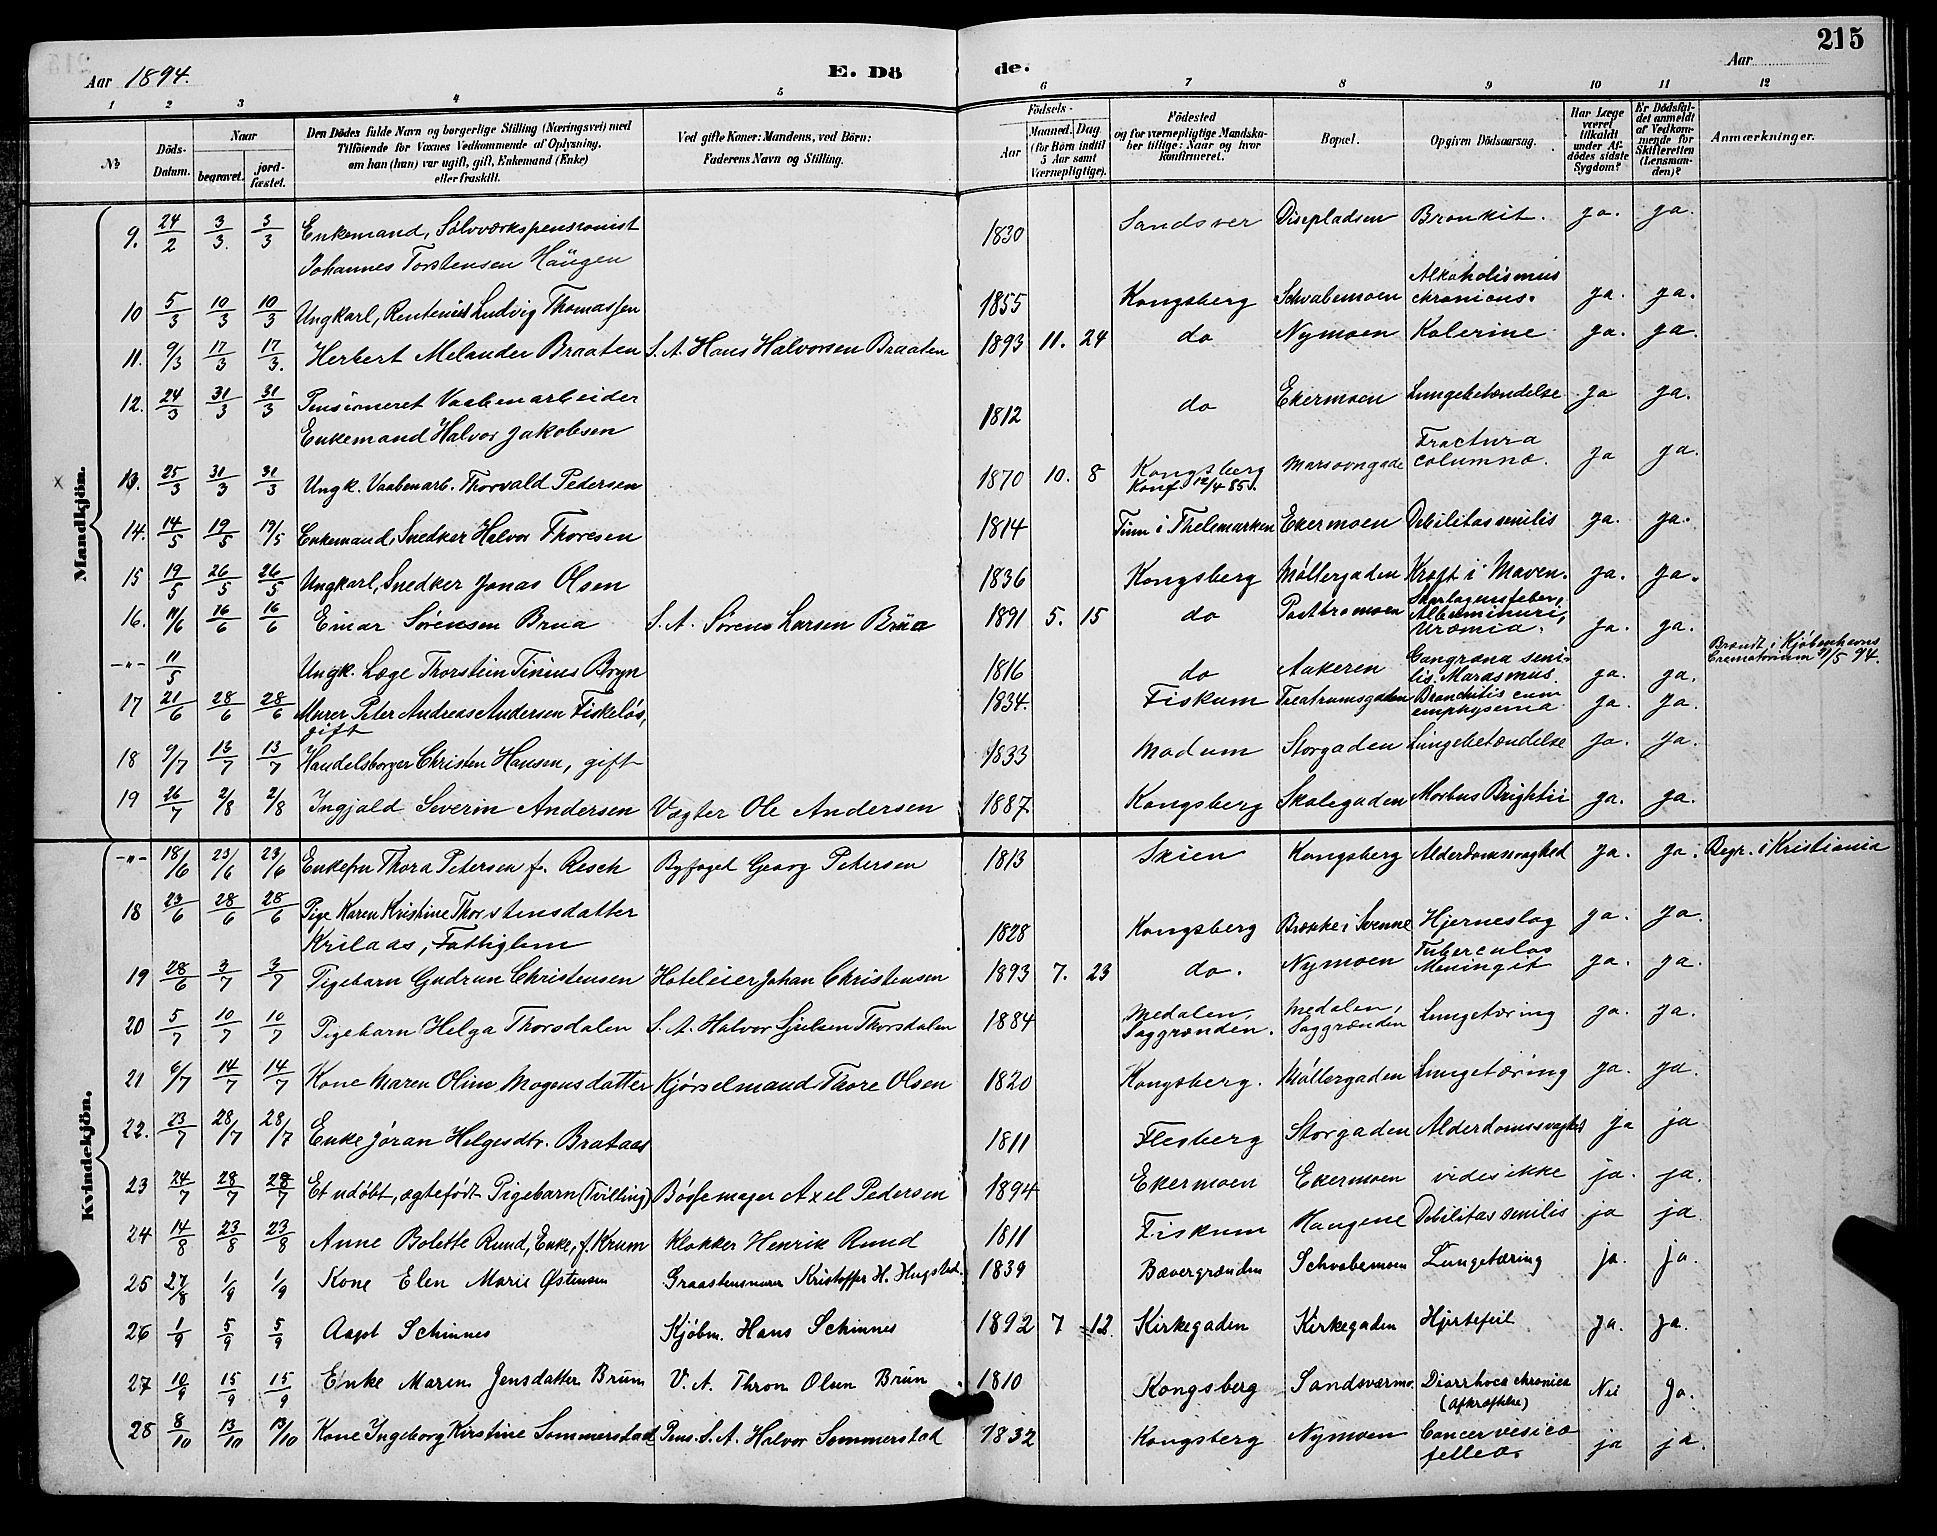 215
Aar 1894. E. Dö de. Aar
1 2 3 4 5 6 7 8 9 10 11 12
No
Döds-Datum.
Naar
begravet.
jord-fæstet.
Den Dödes fulde Navn og borgerlige Stilling (Næringsvei) med
Tilföiende for Voxnes Vedkommende af Oplysning,
om han (hun) var ugift, gift, Enkemand (Enke)
eller fraskilt.
Ved gifte Koner: Mandens, ved Börn:
Faderens Navn og Stilling.
Födsels-
Aar
Maaned. Dag
(for Börn indtil
5 Aar samt
Værnepligtige).
Födested
og for værnepligtige Mandska-
ber tillige: Naar og hvor
konfirmeret.
Bopæl.
Opgiven Dödsaarsag.
Har Læge
været
tilkaldt
under Af-
dödes sidste
Sygdom?
Er Dödsfal-
det anmeldt
af Vedkom-
mende for
Skifteretten
(Lensman-
den)?
Anmærkninger.
Mandkjön.
9. 24/2 3/3. 3/3 Enkemand, Sølvværkspensionist 1830 Sandsver Disepladsen Bronkit. ja. ja.
Johannes Torstensen Haugen
10 5/3 10/3 10/3 Ungkarl, Rentenist Ludvig Thomassen 1855 Kongsberg Schvabemoen Alkoholismus chronicus. ja. ja.
11. 9/3 17/3 17/3. Herbert Melander Braaten S. A. Hans Halvorsen Braaten 1893 11. 24 do Nymoen Kolerine ja. ja.
12. 24/3 31/3 31/3 Pensioneret Vaabenarbeider 1812 do Ekermoen Lungebetændelse ja ja.
Enkemand Halvor Jakobsen
x 13. 25/3 31/3 31/3 Ungk. Vaabenarb. Thorvald Pedersen 1870 10. 8 Kongsberg Fractura columna. ja ja.
Konf. 12/4 85.
14. 14/5 19/5 19/5 Enkemand, Snedker Halvor Thoresen 1814 Tinn i Thelemarken Ekermoen Debilitas senilis ja. ja.
15 19/5 26/5 26/5 Ungkarl, Snedker Jonas Olsen 1836 Kongsberg Møllergaden Kræft i Maven. ja. ja.
16. 11/6 16/6 16/6 Einar Sørensen Brua S. A. Søren Larsen Brua 1891 5. 15 do Skarlagensfeber, Albuminuri, Uræmia. ja. ja.
-"- 11/5 Ungk. Læge Thorstein Tinius Bryn 1816 do Aakeren Gangræna senilis. Marasmus. ja. ja. Brændt i Kjøbenhavns Crematorium /5 94.
17 21/6 28/6 28/6 Murer Peter Andreas Andersen Fiskeløs, gift 1834. Fiskum Teatrumsgaden Bronchitis cum emphysema ja. ja.
18 9/7 13/7 13/7 Handelsborger Christen Hansen, gift 1833 Modum Storgaden Lungebetændelse ja. ja.
19 26/7 2/8 2/8 Ingjald Severin Andersen Vægter Ole Andersen 1887 Kongsberg Skolegaden Morbus Brightii ja. ja.
Kvindekjön.
-"- 18/6 23/6 23/6 Enkefru Thora Petersen f. Resch Byfoged Georg Petersen 1813 Skien Kongsberg Alderdomssvaghed ja. ja. Begr. i Kristiania
18 23/6 28/6 28/6 Pige Karen Kristine Thorstensdatter 1828 Kongsberg Hjerneslag ja. ja.
Krilaas, Fattiglem
19 28/6 3/7 3/7 Pigebarn Gudrun Christensen Hoteleier Johan Christensen 1893 7. 23 do. Nymoen Tuberculøs Meningit ja. ja.
20 5/7 10/7 10/7 Pigebarn Helga Thorsdalen S. A. Halvor Thorsdalen 1884 Medalen, Saggrænden. Medalen, Saggrænden Lungetæring ja. ja.
21 6/7 14/7 14/7 Kone Maren Oline Mogensdatter Kjørselmand Thore Olsen 1820 Kongsberg. Møllergaden Lungetæring ja. ja.
22. 23/7 28/7 28/7 Enke Jøran Helgesdtr. Brataas 1811 Flesberg Storgaden Alderdomssvaghed ja ja
23 24/7 28/7 28/7 Et udøbt, ægtefødt Pigebarn (Tvilling) Bøssemager Axel Pedersen 1894 Ekermoen Ekermoen vides ikke ja. ja.
24 14/8 23/8 23/8 Anne Bolette Rund, Enke, f. Krum Klokker Henrik Rund 1811 Fiskum Haugene Debilitas senilis ja ja.
25 27/8 1/9 1/9 Kone Elen Marie Østensen Kristoffer H. Hugsted. 1839 Bævergrænden Schvabemoen Lungetæring ja. ja.
26 1/9 5/9 5/9 Aagot Schinnes Kjøbm. Hans Schinnes 1892 7 12. Kirkegaden Kirkegaden Hjertefeil ja. ja.
27 10/9 15/9 15/9 Enke Maren Jensdatter Brun V. A. Thron Olsen Brun 1810 Kongsberg Sandsværmo. Diarrhoea chronica (afkræftelse) Nei Ja.
28 8/10 13/10 13/10 Kone Ingeborg Kirstine Sommerstad Pens. S. A. Halvor Sommerstad 1832 Kongsberg Nymoen Cancer vesica fellea. ja ja.